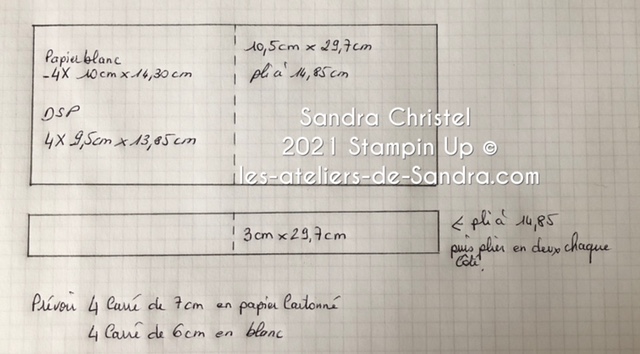 10,5cm x 29,7cm
Papier blanc
-4X 10cm x 14,30cm
pli à 14,85cm
DSP
4X 9,5cm x 13,85cm
Sandra Christel
2021 Stampin Up ©
les-ateliers-de-Sandra.com
3cm x 29,7cm
< pli à 14,85
puis plier en deux chaque
côté.
Prévoir 4 Carré de 7cm en papier Cartonné
4 Carré de 6cm en blanc